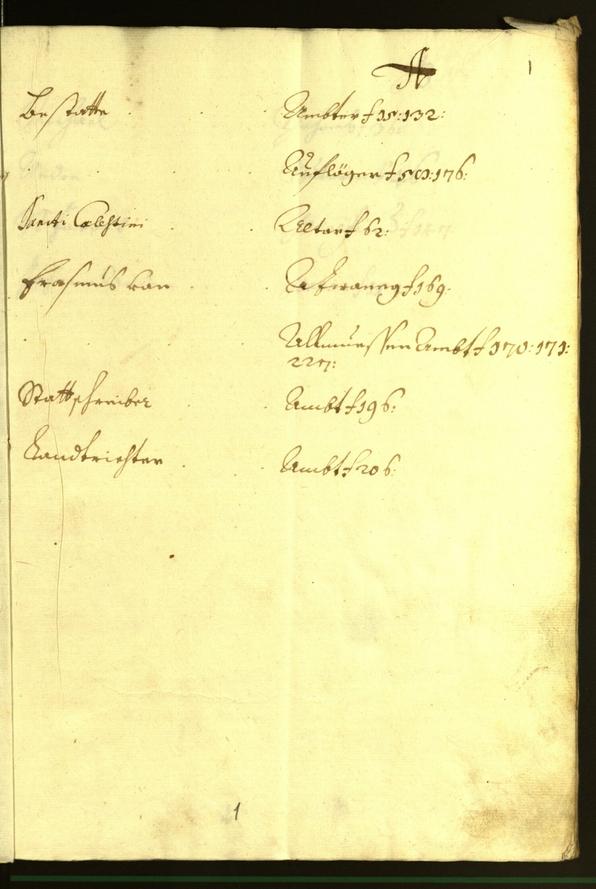 A
1
Bestätte Ämbter f 15: 132:
Aufleger f 50: 176:
Sancti Cælestini Altar f 62:
Erasmus von f 169.
Allmuessen Ambt f 170: 171:
227:
Stattschreiber Ambt f 196:
Landtrichter Ambt f 206:
1